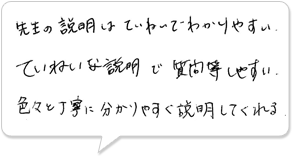 先生の説明はていねいでわかりやすい.
ていねいな説明で質問等しやすい.
色々と丁寧に分かりやすく説明してくれる.